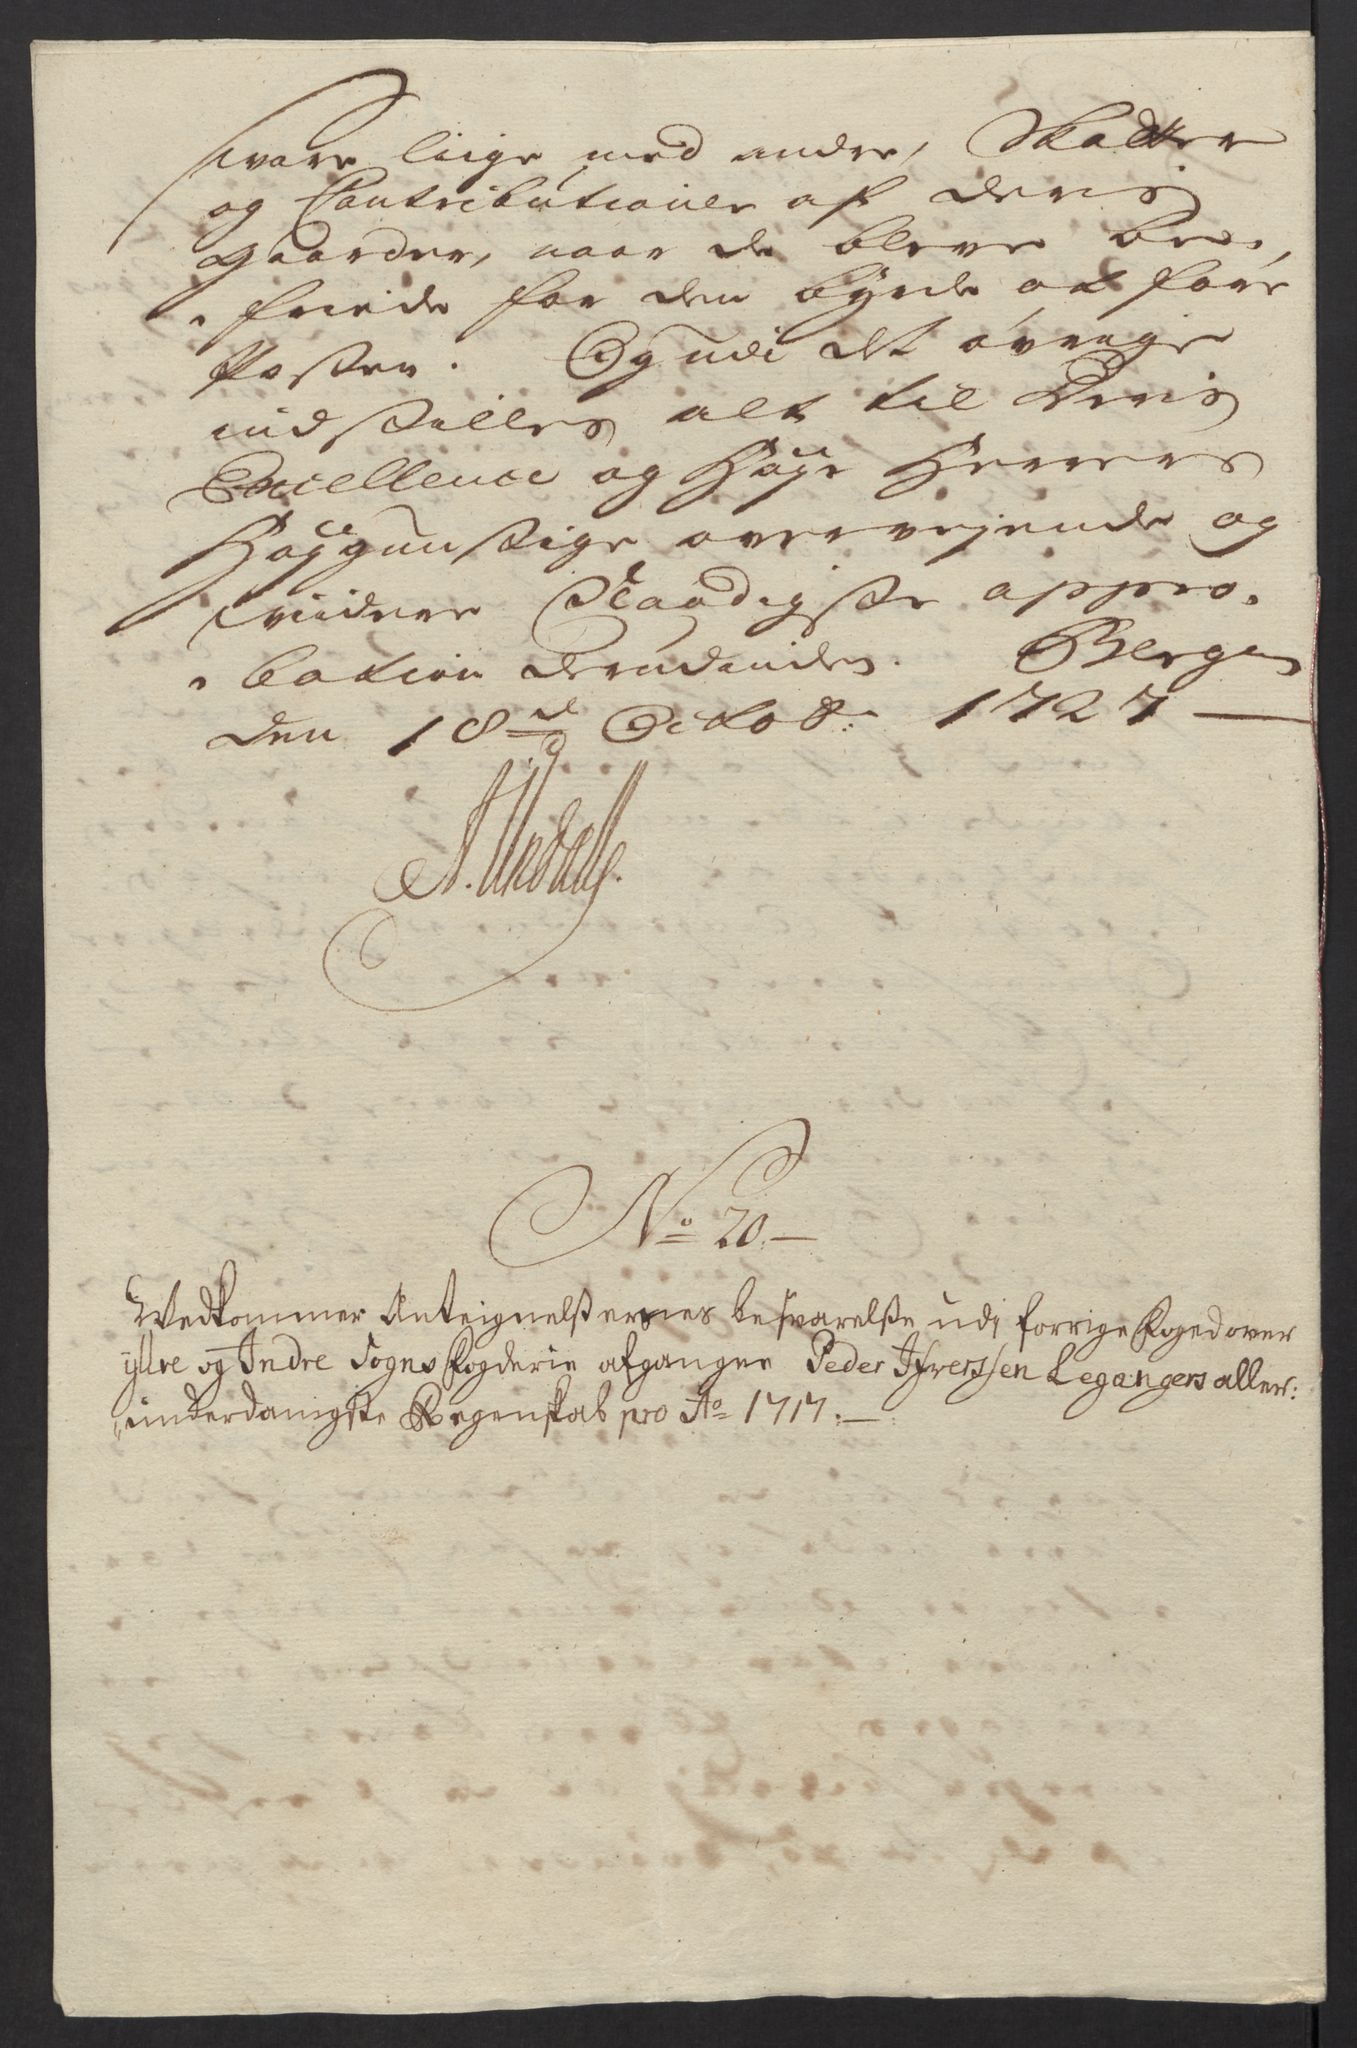 svare liige med andre, Skatter
og Contributioner af deris
gaarder, naar de bleve be,
friede for den byrde at føre
Posten. Og udi det øvrige
indstilles alt til Deris
Excellence og Høye Herrers
Høygunstige overvejende og
viidere Naadigste appro,
bation derudinden. Bergen
den 18de Octobr: 1727
N° 20.
Vedkommer Anteignelsernes besvarelse udj forrige Foged over
yttre og Indre Sogns Fogderie afgangne Peder Ifverssen Legangers aller:
underdanigste Regenskab pro Ao 1717.